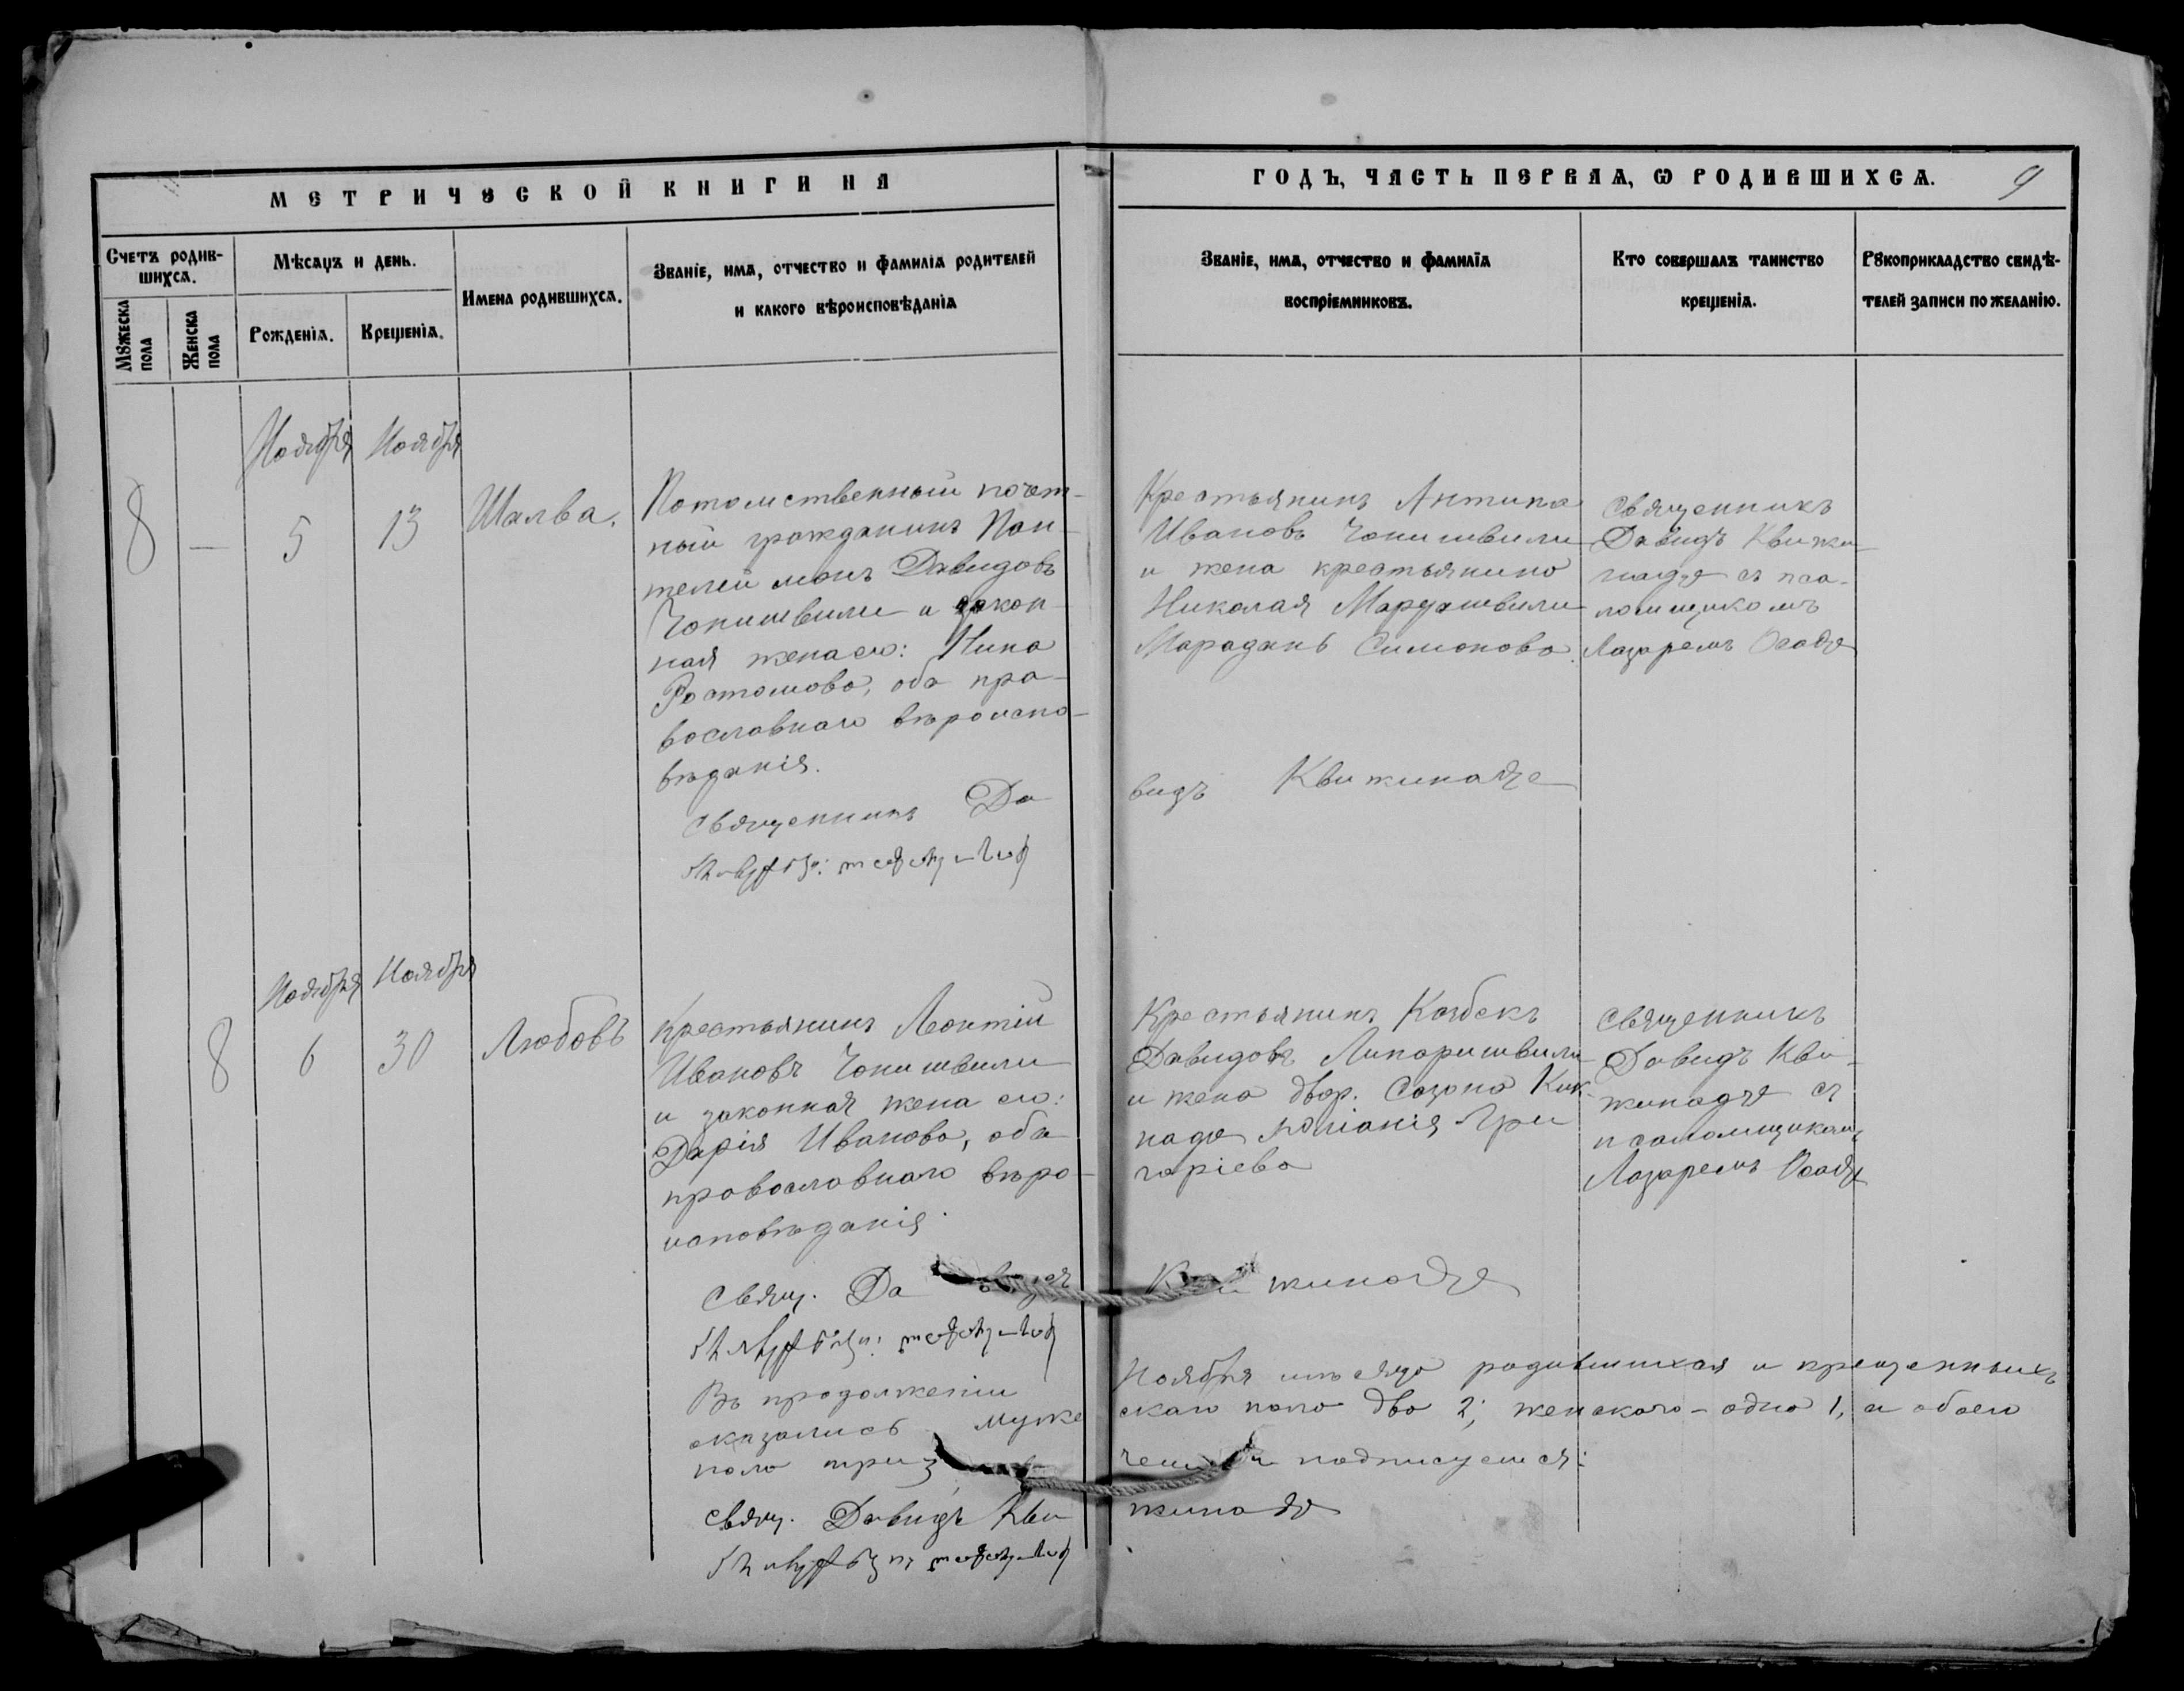 МЕТРИЧЕСКОЙ КНИГИ НА
ГОДЪ, ЧАСТЬ ПЕРВАЯ, Ѡ РОДИВШИХСѦ.
9
Счетъ родив-
шихсѧ.
Мꙋжеска пола
Женска пола
Мѣсѧцъ и день.
Рожденіѧ.
Крещеніѧ.
Имена родившихсѧ.
Званіе, имѧ, отчество и фамиліѧ родителей
и какого вѣроисповѣданіѧ
Званіе, имѧ, отчество и фамиліѧ
воспріемниковъ.
Кто совершалъ таинство
крещеніѧ.
Рꙋкоприкладство свидѣ-
телей записи по желанію.
Ноября Ноября
8 — 5 13 Шалва.
Потомственный почет-
ный гражданинъ Пан-
телеймонъ Давидовъ
Чонишвили и закон-
ная жена его: Нина
Ростомова, оба пра-
вославнаго вѣроиспо-
вѣданія.
Крестьянинъ Антипа
Ивановъ Чонишвили
и жена крестьянина
Николая
Симонова
Священникъ
Давидъ Квижи-
надзе съ пса-
ломщикомъ
Лазаремъ Осадзе
Священникъ Да
видъ Квижинадзе
Ноября Ноября
8 6 30 Любовь
Крестьянинъ Леонтій
Ивановъ Чонишвили
и законная жена его:
Дарія Иванова, оба
православнаго вѣро-
исповѣданія.
Крестьянинъ Казбекъ
Давидовъ Липаришвили
и жена двор. Сазона Кик-
надзе Юліанія Гри
горіева
Священникъ
Давидъ Кви-
жинадзе съ
псаломщикомъ
Лазаремъ Осадзе
Свящ. Давидъ Квижинадзе
Въ продолженіи Ноября мѣсяца родившихся и крещенныхъ
оказалось мужескаго пола два 2; женскаго - одна 1, а обоего
пола три 3, въ чемъ и подписуемся:
Свящ. Давидъ Кви
жинадзе